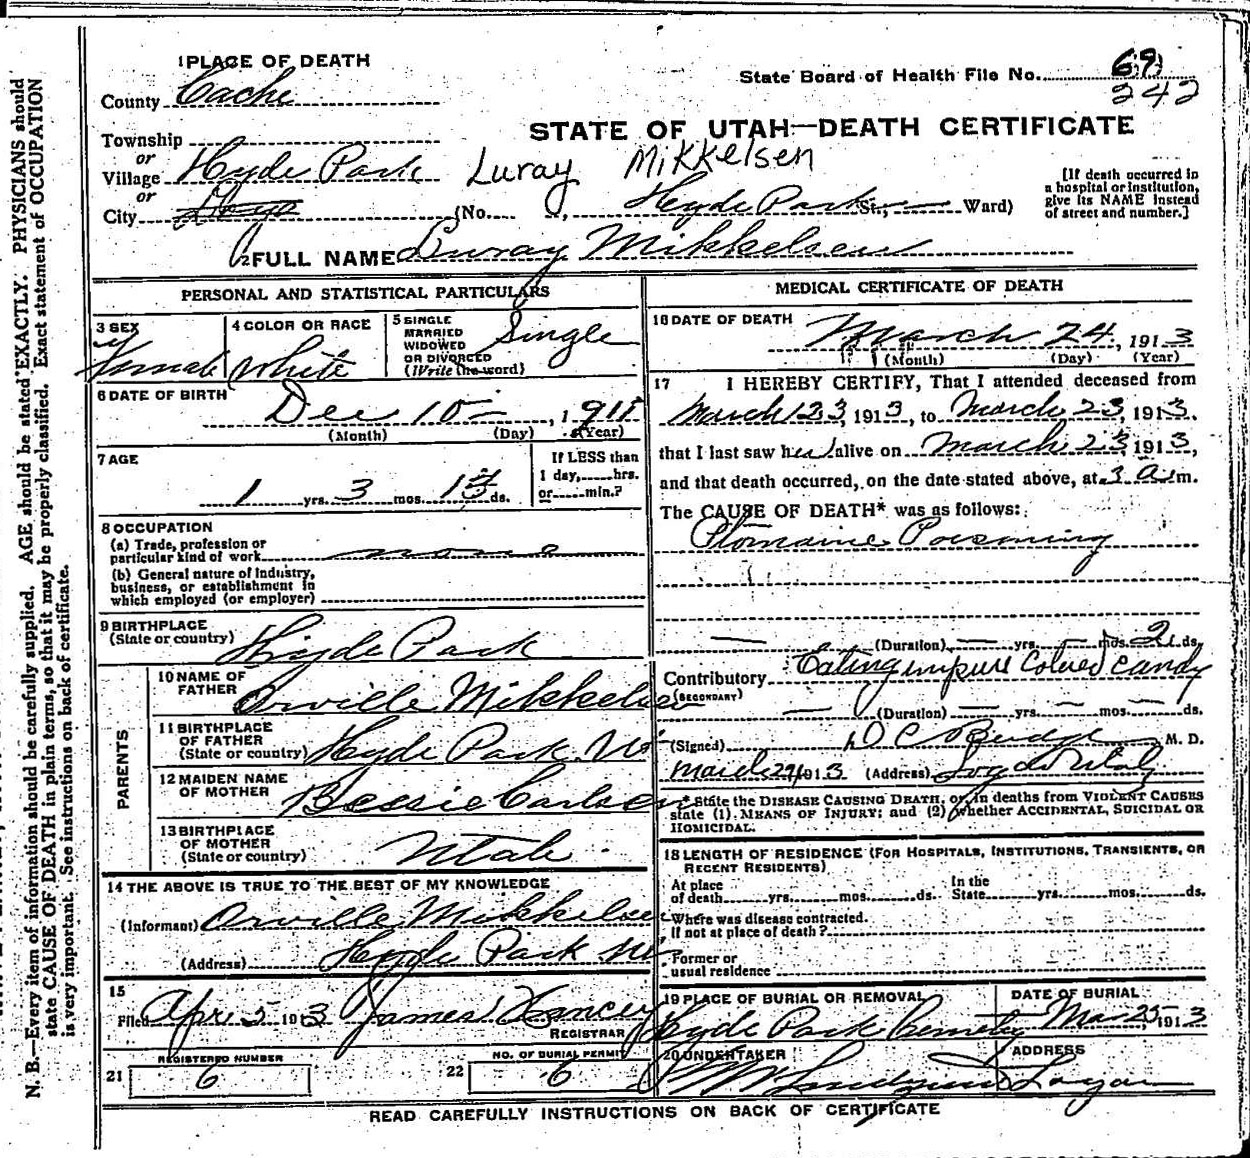 1 PLACE OF DEATH
County Cache
State Board of Health File No. 69
242
Township
or
Village Hyde Park
or
City
STATE OF UTAH—DEATH CERTIFICATE
Luray Mikkelsen
(No. , Hyde Park St., Ward)
[If death occurred in
a hospital or institution,
give its NAME instead
of street and number.]
2 FULL NAME Luray Mikkelsen
PERSONAL AND STATISTICAL PARTICULARS
3 SEX
Female
4 COLOR OR RACE
White
5 SINGLE
MARRIED
WIDOWED
OR DIVORCED
(Write the word)
Single
6 DATE OF BIRTH
Dec 10 , 1911
(Month) (Day) (Year)
7 AGE
1 yrs. 3 mos. ds.
If LESS than
1 day, hrs.
or min.?
8 OCCUPATION
(a) Trade, profession or
particular kind of work none
(b) General nature of industry,
business, or establishment in
which employed (or employer)
9 BIRTHPLACE
(State or country) Hyde Park
PARENTS
10 NAME OF
FATHER Orville Mikkelsen
11 BIRTHPLACE
OF FATHER
(State or country) Hyde Park
12 MAIDEN NAME
OF MOTHER Bessie Carlsen
13 BIRTHPLACE
OF MOTHER
(State or country) Utah
14 THE ABOVE IS TRUE TO THE BEST OF MY KNOWLEDGE
(Informant) Orville Mikkelsen
(Address) Hyde Park
15
Filed Apr 5 1913 James Hancey
REGISTRAR
REGISTERED NUMBER
21 6
NO. OF BURIAL PERMIT
22 6
MEDICAL CERTIFICATE OF DEATH
16 DATE OF DEATH
March 24, 1913
(Month) (Day) (Year)
17 I HEREBY CERTIFY, That I attended deceased from
March 23, 1913, to March 23, 1913.
that I last saw her alive on March 23, 1913,
and that death occurred, on the date stated above, at 3 a m.
The CAUSE OF DEATH* was as follows:
Ptomaine Poisoning
(Duration) yrs. mos. 2 ds.
Contributory Eating impure Colored candy
(SECONDARY)
(Duration) yrs. mos. ds.
(Signed) D C Budge M. D.
March 24, 1913 (Address) Logan Utah
*State the DISEASE CAUSING DEATH, or, in deaths from VIOLENT CAUSES
state (1) MEANS OF INJURY; and (2) whether ACCIDENTAL, SUICIDAL OR
HOMICIDAL.
18 LENGTH OF RESIDENCE (FOR HOSPITALS, INSTITUTIONS, TRANSIENTS, OR
RECENT RESIDENTS)
At place
of death yrs. mos. ds.
In the
State yrs. mos. ds.
Where was disease contracted.
If not at place of death?
Former or
usual residence
19 PLACE OF BURIAL OR REMOVAL
Hyde Park Cemetery
DATE OF BURIAL
Mar 25, 1913
20 UNDERTAKER
ADDRESS
Logan
READ CAREFULLY INSTRUCTIONS ON BACK OF CERTIFICATE
N. B.—Every item of information should be carefully supplied. AGE should be stated EXACTLY. PHYSICIANS should
state CAUSE OF DEATH in plain terms, so that it may be properly classified. Exact statement of OCCUPATION
is very important. See instructions on back of certificate.